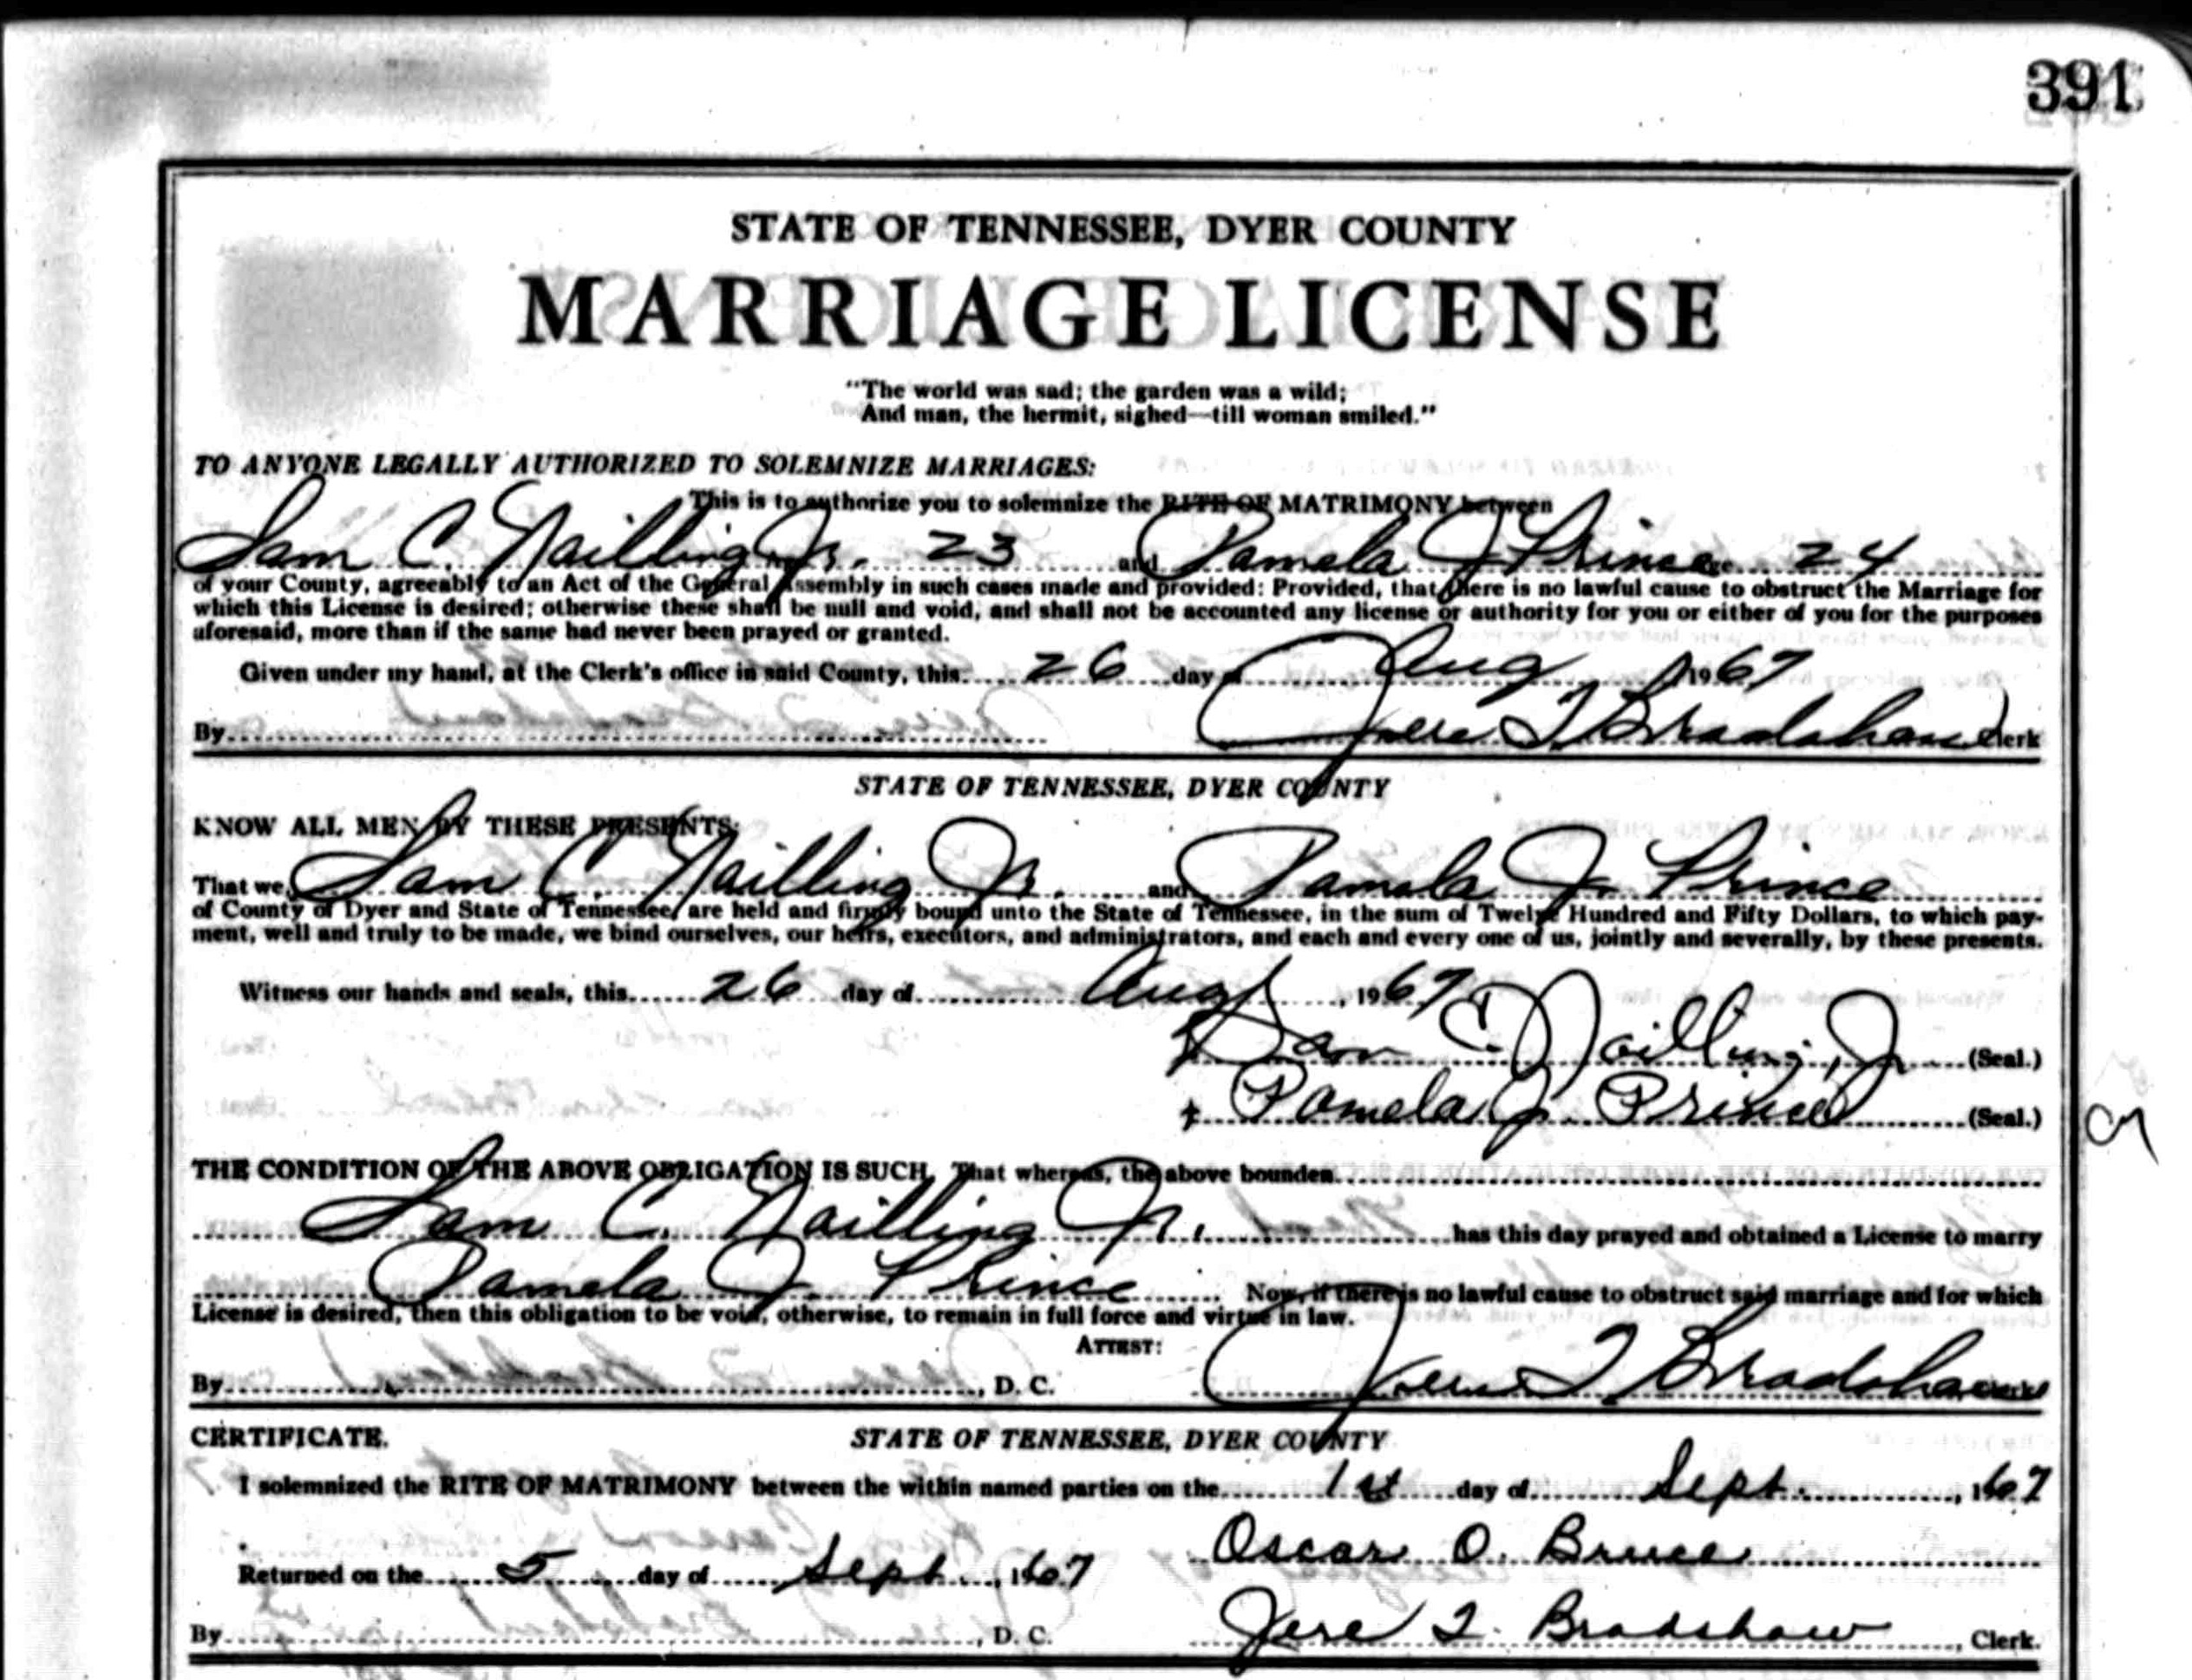 391
STATE OF TENNESSEE, DYER COUNTY
MARRIAGE LICENSE
"The world was sad; the garden was a wild;
And man, the hermit, sighed—till woman smiled."
TO ANYONE LEGALLY AUTHORIZED TO SOLEMNIZE MARRIAGES:
This is to authorize you to solemnize the RITE OF MATRIMONY between
Sam C. Nailling Jr. 23 and Pamela J. Prince 24
of your County, agreeably to an Act of the General Assembly in such cases made and provided: Provided, that there is no lawful cause to obstruct the Marriage for
which this License is desired; otherwise these shall be null and void, and shall not be accounted any license or authority for you or either of you for the purposes
aforesaid, more than if the same had never been prayed or granted.
Given under my hand, at the Clerk's office in said County, this 26 day of Aug 1967
By Jere T Bradshaw Clerk
STATE OF TENNESSEE, DYER COUNTY
KNOW ALL MEN BY THESE PRESENTS:
That we, Sam C. Nailling Jr. and Pamela J. Prince
of County of Dyer and State of Tennessee, are held and firmly bound unto the State of Tennessee, in the sum of Twelve Hundred and Fifty Dollars, to which pay-
ment, well and truly to be made, we bind ourselves, our heirs, executors, and administrators, and each and every one of us, jointly and severally, by these presents.
Witness our hands and seals, this 26 day of Aug, 1967
Sam C. Nailling, Jr. (Seal.)
Pamela J. Prince (Seal.)
THE CONDITION OF THE ABOVE OBLIGATION IS SUCH, That whereas, the above bounden
Sam C. Nailling Jr. has this day prayed and obtained a License to marry
Pamela J. Prince Now, if there is no lawful cause to obstruct said marriage and for which
License is desired, then this obligation to be void, otherwise, to remain in full force and virtue in law.
ATTEST:
By, D. C. Jere T Bradshaw, Clerk
CERTIFICATE. STATE OF TENNESSEE, DYER COUNTY
I solemnized the RITE OF MATRIMONY between the within named parties on the 1st day of Sept., 1967
Oscar O. Bruce
Returned on the 5 day of Sept, 1967
By, D. C. Jere T. Bradshaw, Clerk.